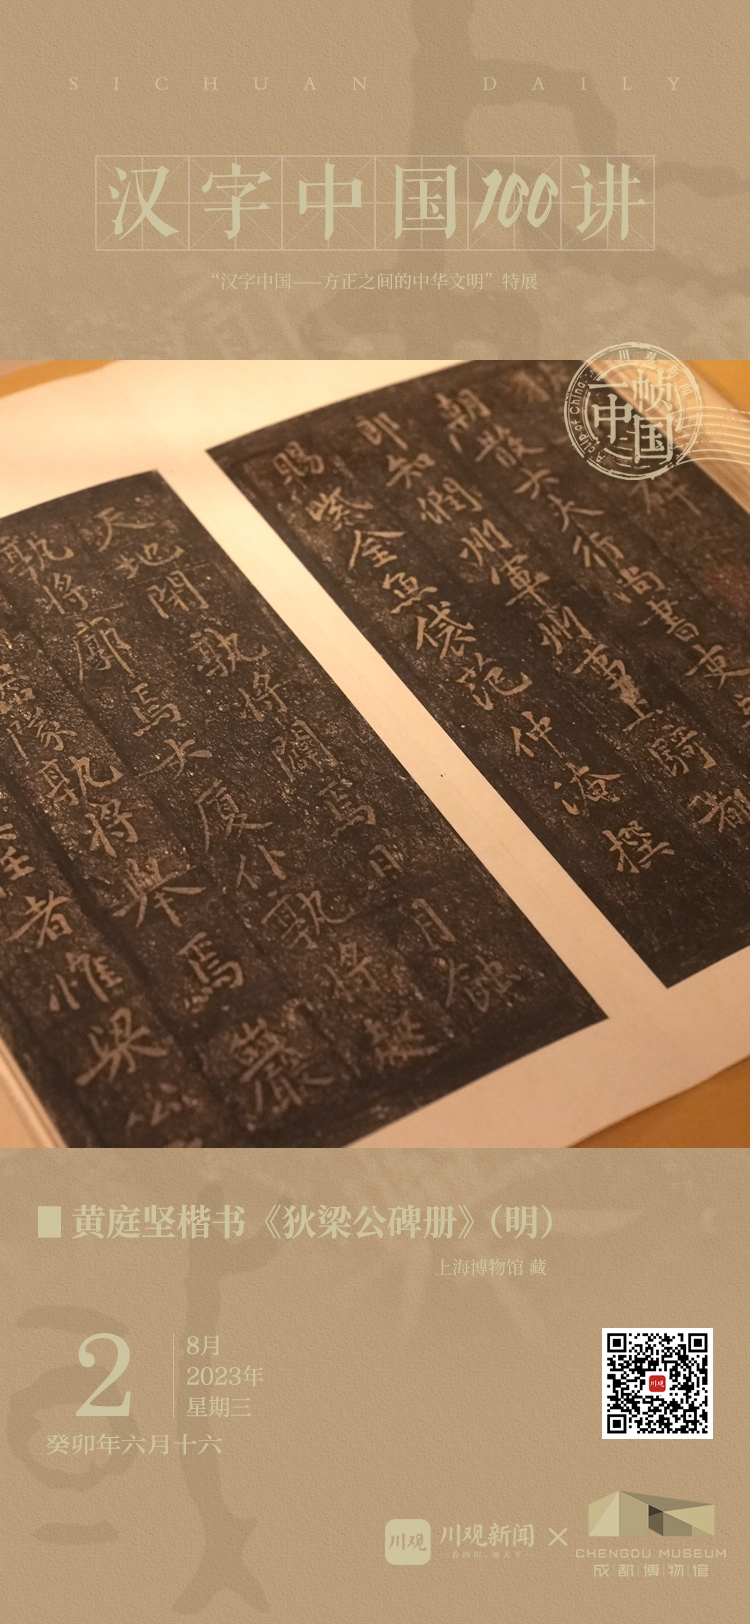 SICHUAN DAILY
汉字中国100讲
“汉字中国——方正之间的中华文明”特展
一帧中国
A clip of China
朝散大夫行尚書吏
郎知潤州軍州事上騎都
賜紫金魚袋范仲淹撰
天地閉孰將闢焉日月蝕
孰將廓焉大厦仆孰將
孰將舉焉巖
者惟梁公
■ 黄庭坚楷书《狄梁公碑册》（明）
上海博物馆 藏
2
8月
2023年
星期三
癸卯年六月十六
川观
川观
川观新闻
CHENGDU MUSEUM
成都博物馆